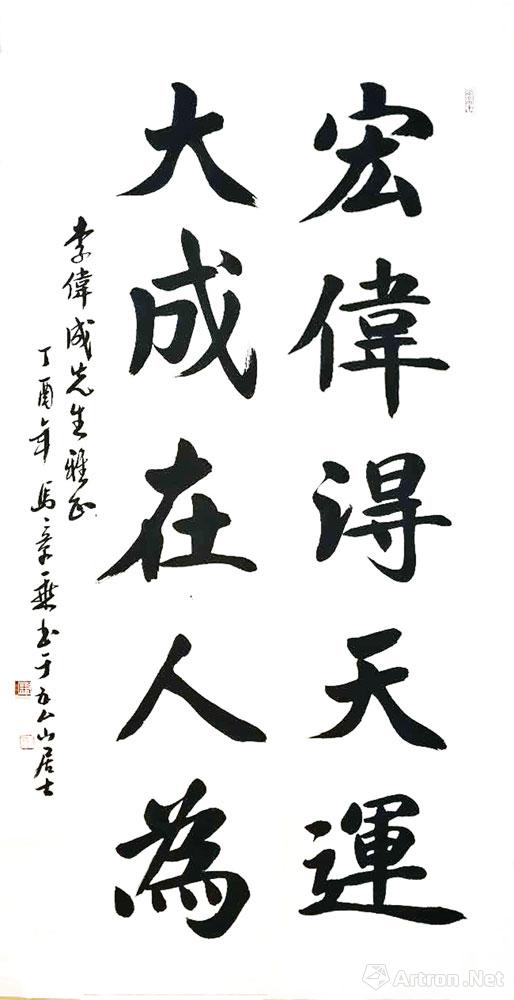 宏偉得天運
大成在人為
李偉成先生雅正
丁酉年馬章乗書于五公山居士
Artron.Net